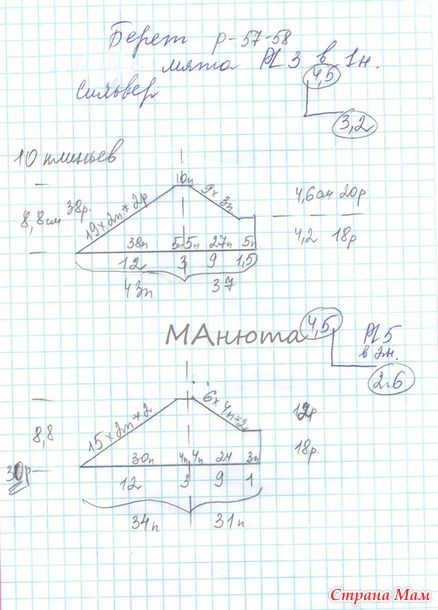 Берет р-57-58
мята PL 3 в 1н.
сильвер
4,5
3,2
10 клиньев
8,8 см 38р.
19 x 2п * 2р
10п
9 x 3п
4,6 см 20р
4,2 18р
38п 5п 5п 27п 5п
12 3 9 1,5
43п 37
МАнюта
4,5
PL 5
в 2н.
2.6
8,8
30р
15 x 2п * 2
6 x 4п * 2р
12р
18р.
30п 4п 4п 24 3п
12 3 9 1
34п 31п
Страна Мам